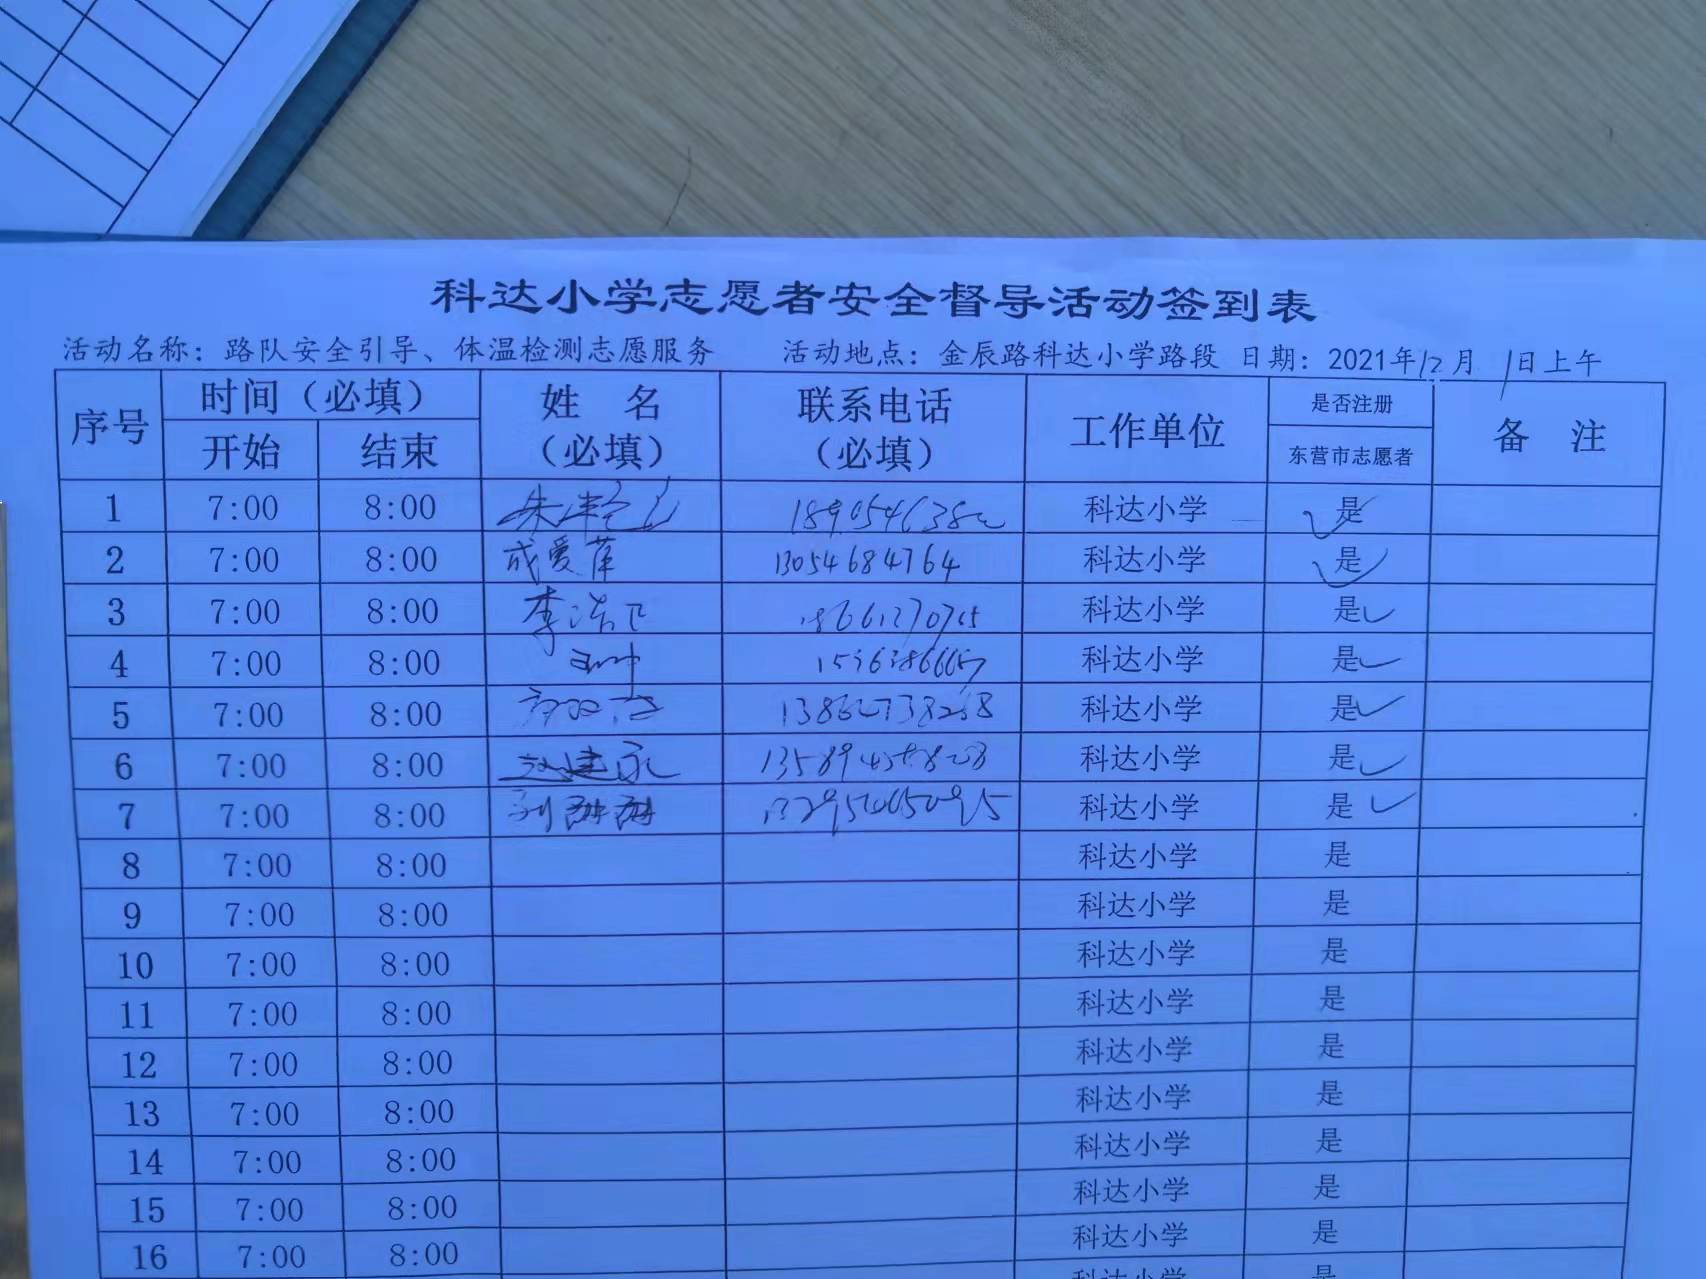 科达小学志愿者安全督导活动签到表
活动名称：路队安全引导、体温检测志愿服务 活动地点：金辰路科达小学路段 日期：2021年12月1日上午
序号 时间（必填） 姓 名（必填） 联系电话（必填） 工作单位 是否注册 备 注
开始 结束 东营市志愿者
1 7:00 8:00 科达小学 是
2 7:00 8:00 成爱萍 13054684764 科达小学 是
3 7:00 8:00 李 科达小学 是
4 7:00 8:00 科达小学 是
5 7:00 8:00 科达小学 是
6 7:00 8:00 科达小学 是
7 7:00 8:00 刘 科达小学 是
8 7:00 8:00 科达小学 是
9 7:00 8:00 科达小学 是
10 7:00 8:00 科达小学 是
11 7:00 8:00 科达小学 是
12 7:00 8:00 科达小学 是
13 7:00 8:00 科达小学 是
14 7:00 8:00 科达小学 是
15 7:00 8:00 科达小学 是
16 7:00 8:00 科达小学 是
科达小学 是